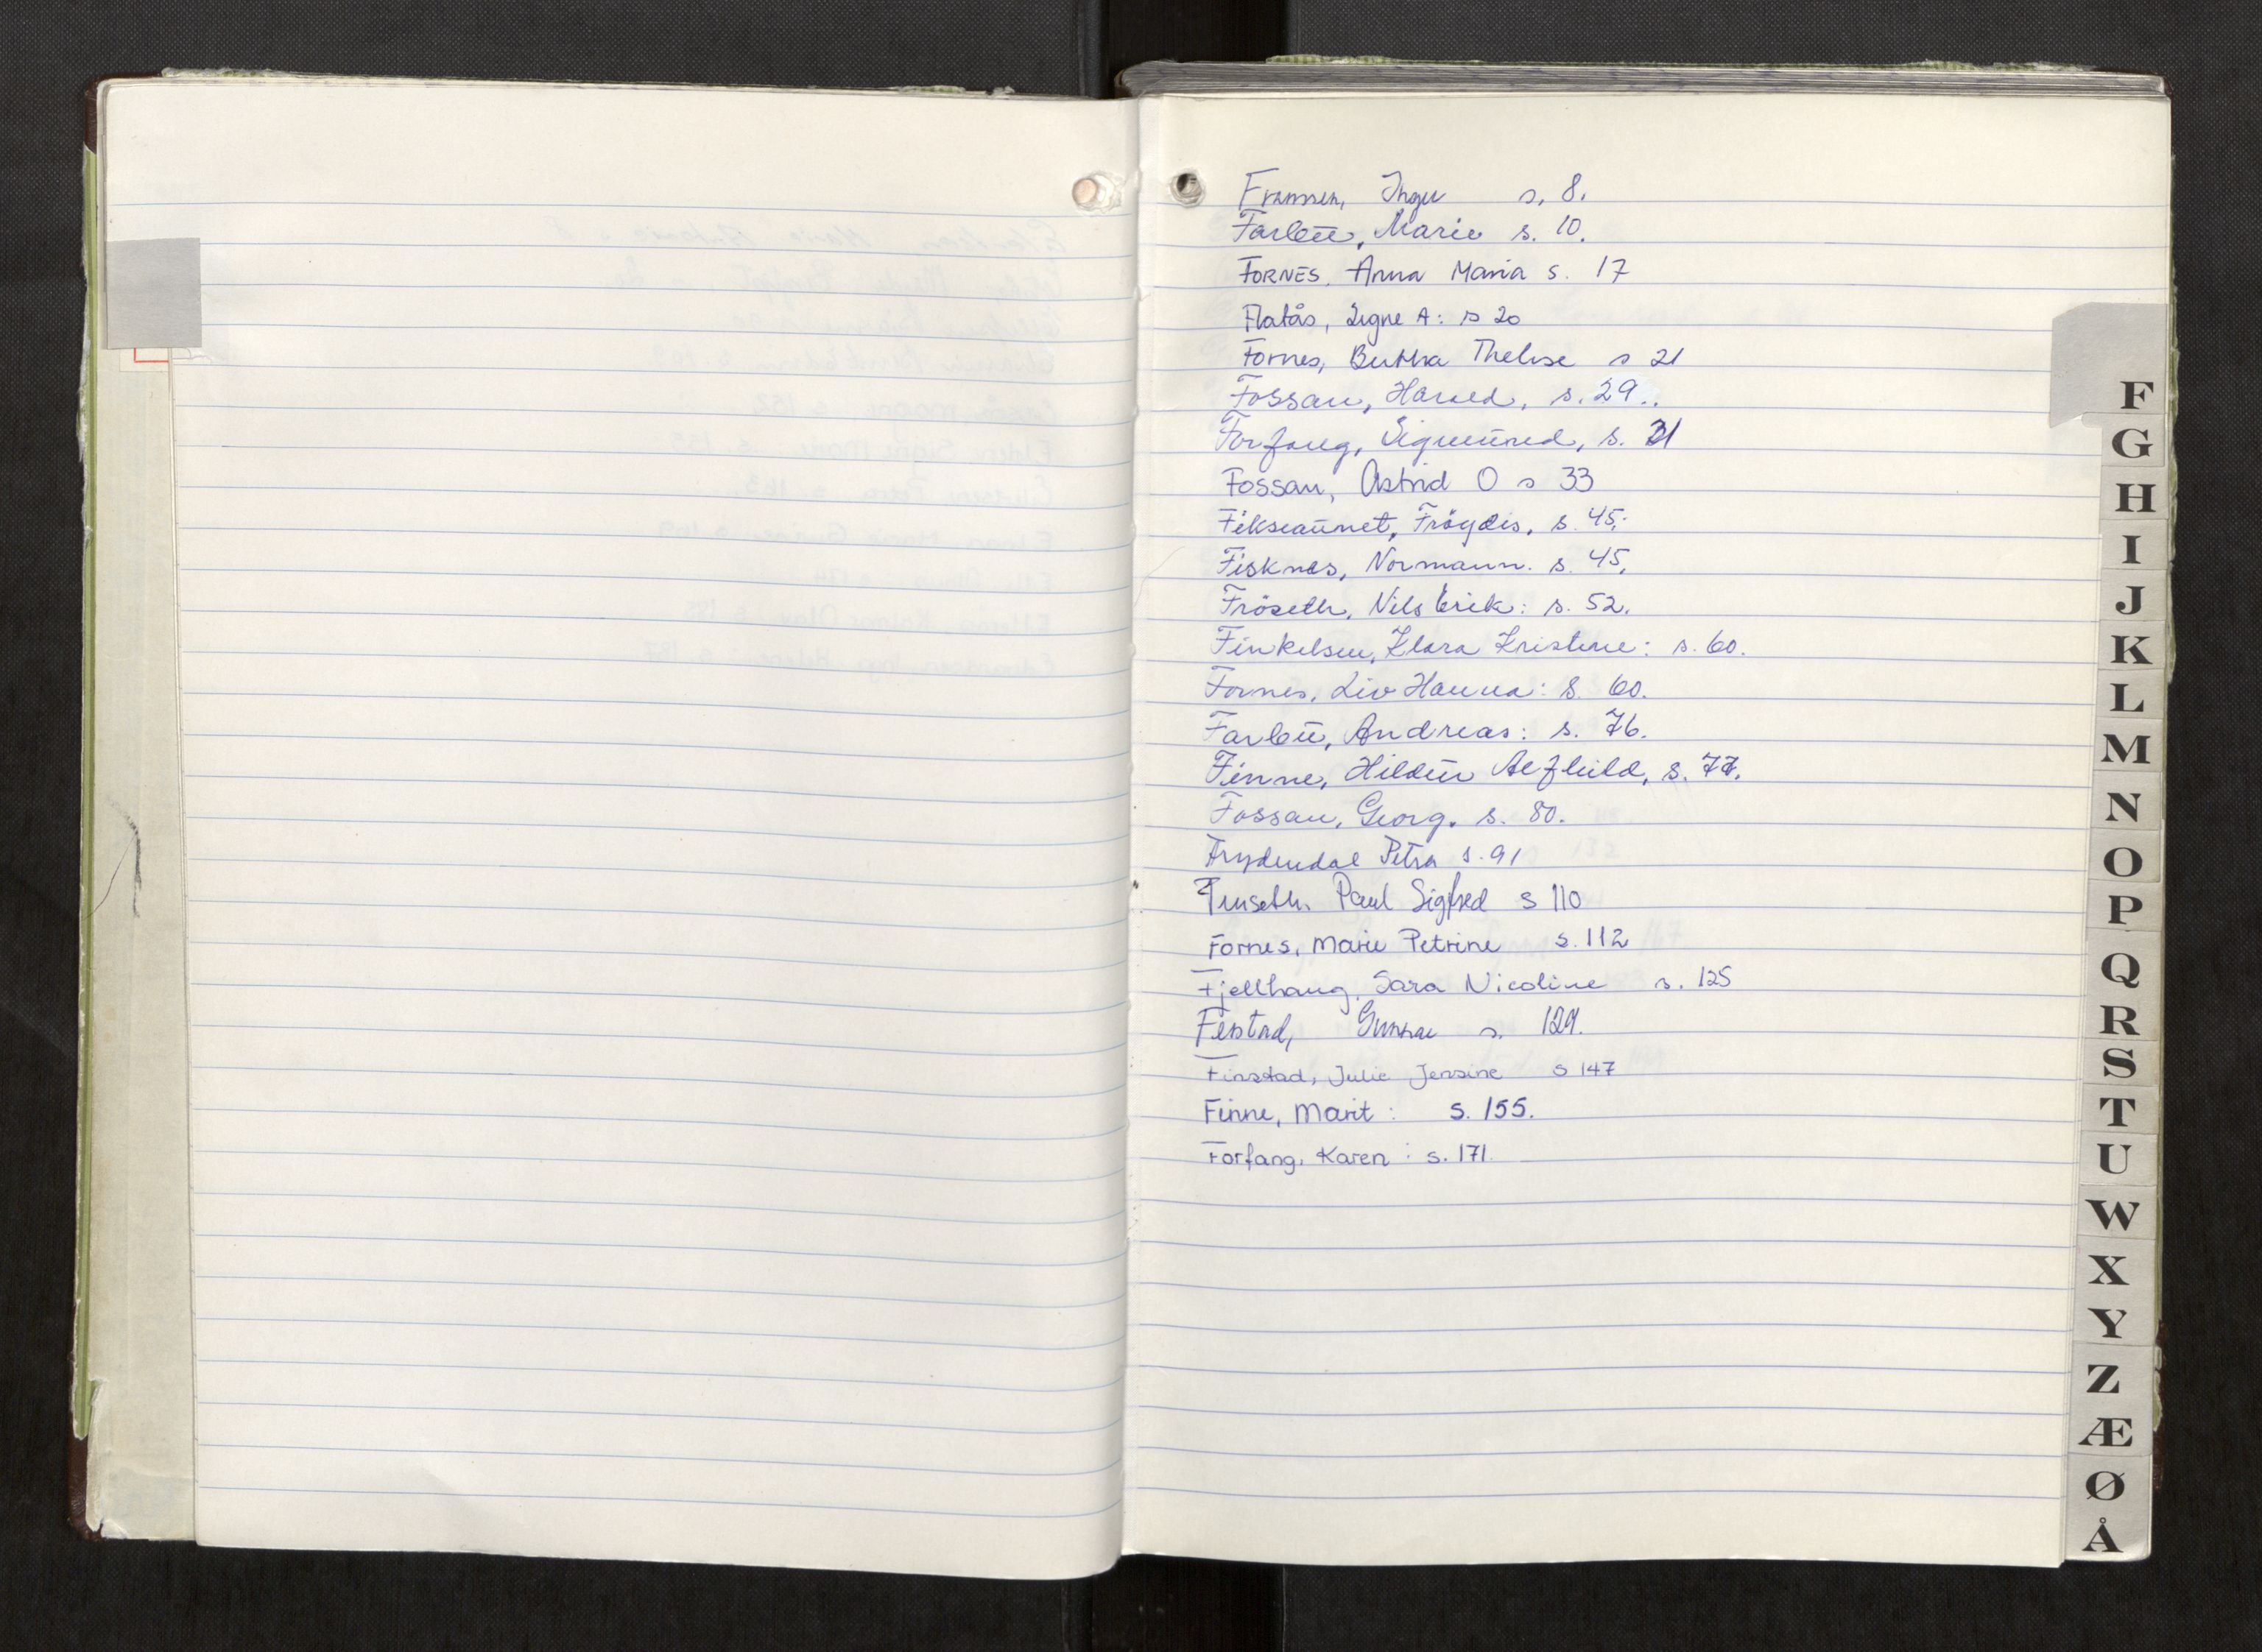 Fransen, Inger s. 8.
Farbu, Marie s. 10.
FORNES, Anna Maria s. 17
Flatås, Signe A: s 20
Fornes, Bertha Thelise s 21
Fossan, Harald, s. 29.
Forfang, Sigmund, s. 31
Fossan, Astrid O s 33
Fikseaunet, Frögdis, s. 45.
Fisknes, Normann. s. 45.
Fröseth, Nils Erik: s. 52.
Finkelsen, Klara Kristine: s. 60.
Fornes, Liv Hanna: s. 60.
Farbu, Andreas: s. 76.
Finne, Hildur Alfhild, s. 77.
Fossan, Georg. s. 80.
Frydendal Petra s. 91
Paul Sigfred s 110
Fornes, Marie Petrine s. 112
Fjellhaug, Sara Nicoline s. 125
Finstad, Gunnar s. 129.
Finstad, Julie Jensine s 147
Finne, Marit: s. 155.
Forfang, Karen: s. 171.
F
G
H
I
J
K
L
M
N
O
P
Q
R
S
T
U
W
X
Y
Z
Æ
Ø
Å